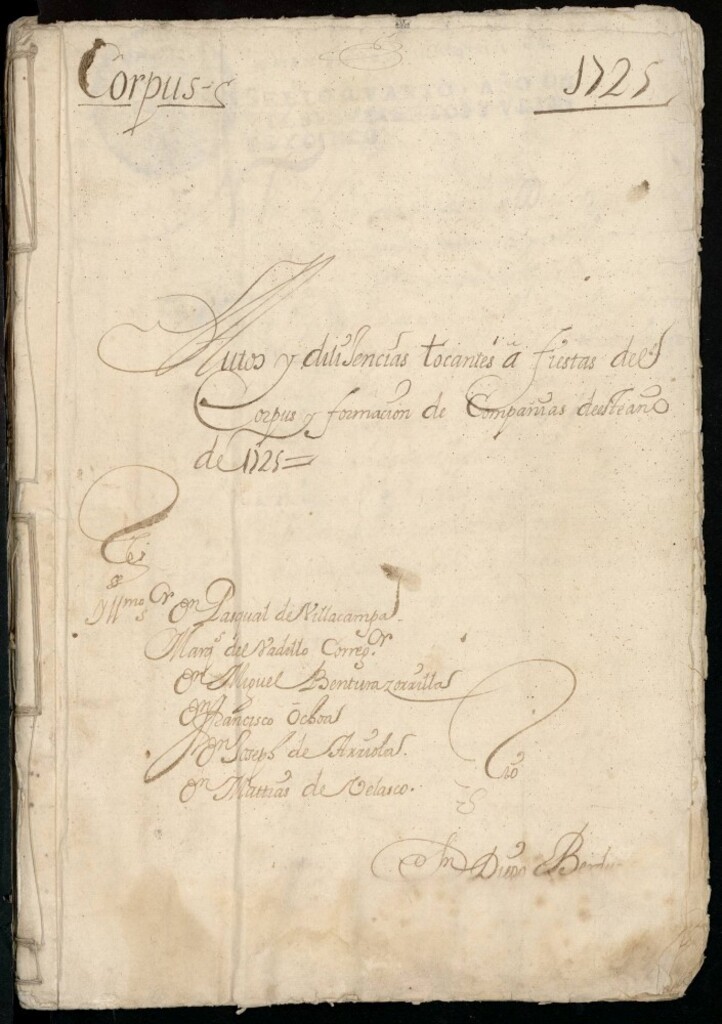 Corpus-s 1725
Autos y dilisencias tocantes à fiestas del
Corpus y formacion de Compañias deste año
de 1725=
Yll.mos S.r
D.n Pasqual de Villacampa.
Marq.s del Vadillo Correg.or
D.n Miguel Bentura zorrilla
D.n Francisco Ochoa
D.n Joseph de Arriola.
D.n Mattias de Velasco.
S.rio
D.n Diego